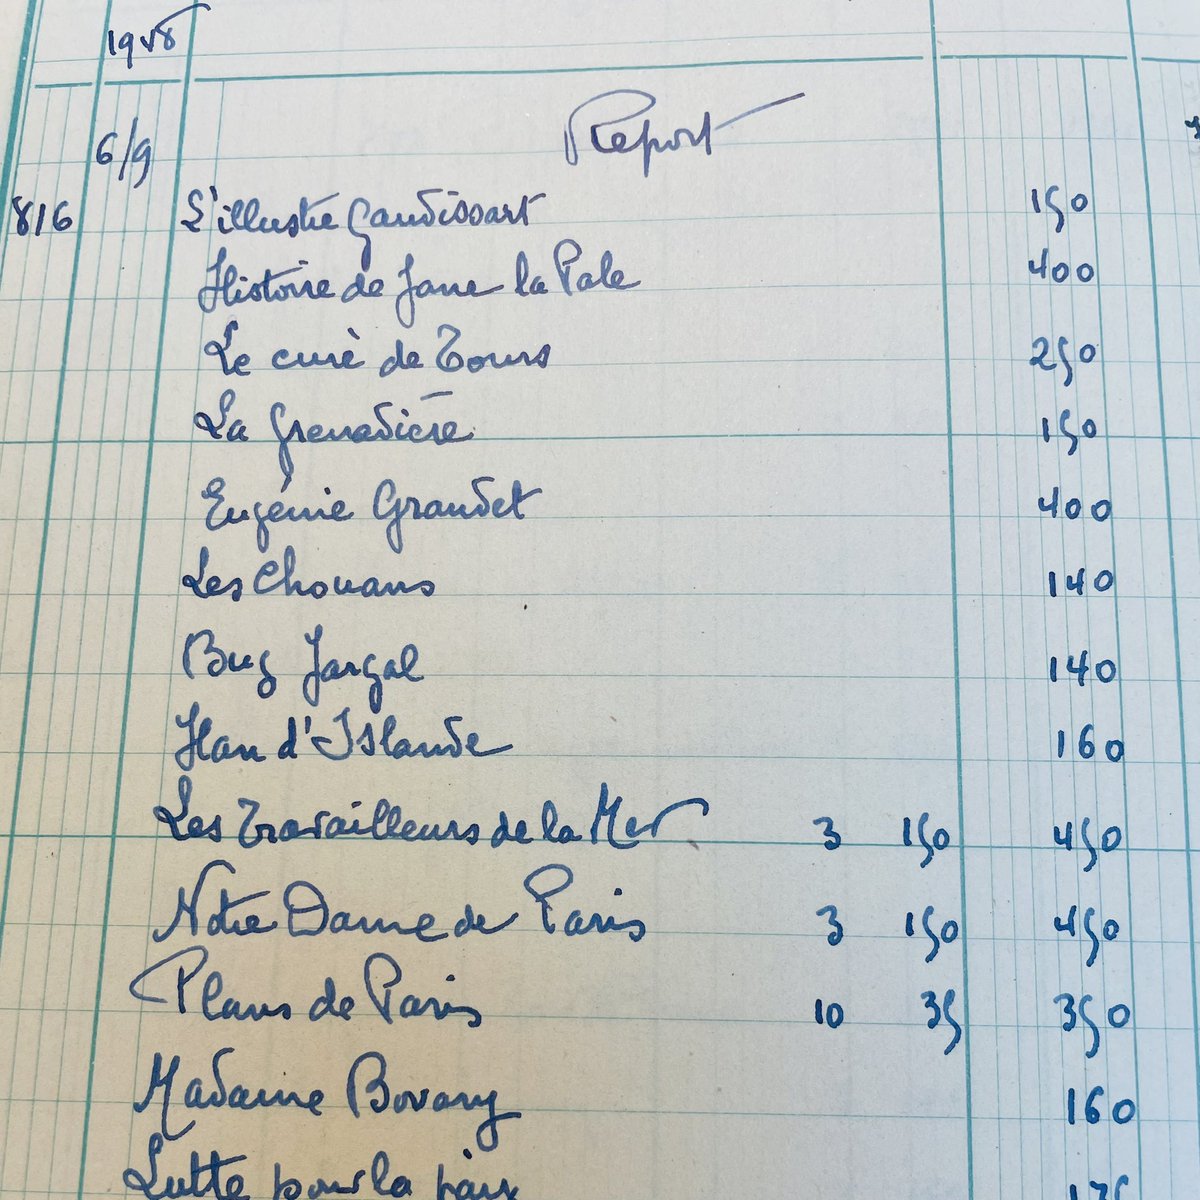 1948
Report
6/9
816 L'illustre Gaudissart 150
Histoire de Jane la Pale 400
Le curè de Tours 250
La Grenadière 150
Eugénie Grandet 400
Les Chouans 140
Bug Jargal 140
Han d'Islande 160
Les Travailleurs de la Mer 3 150 450
Notre Dame de Paris 3 150 450
Plans de Paris 10 35 350
Madame Bovary 160
Lutte pour la paix